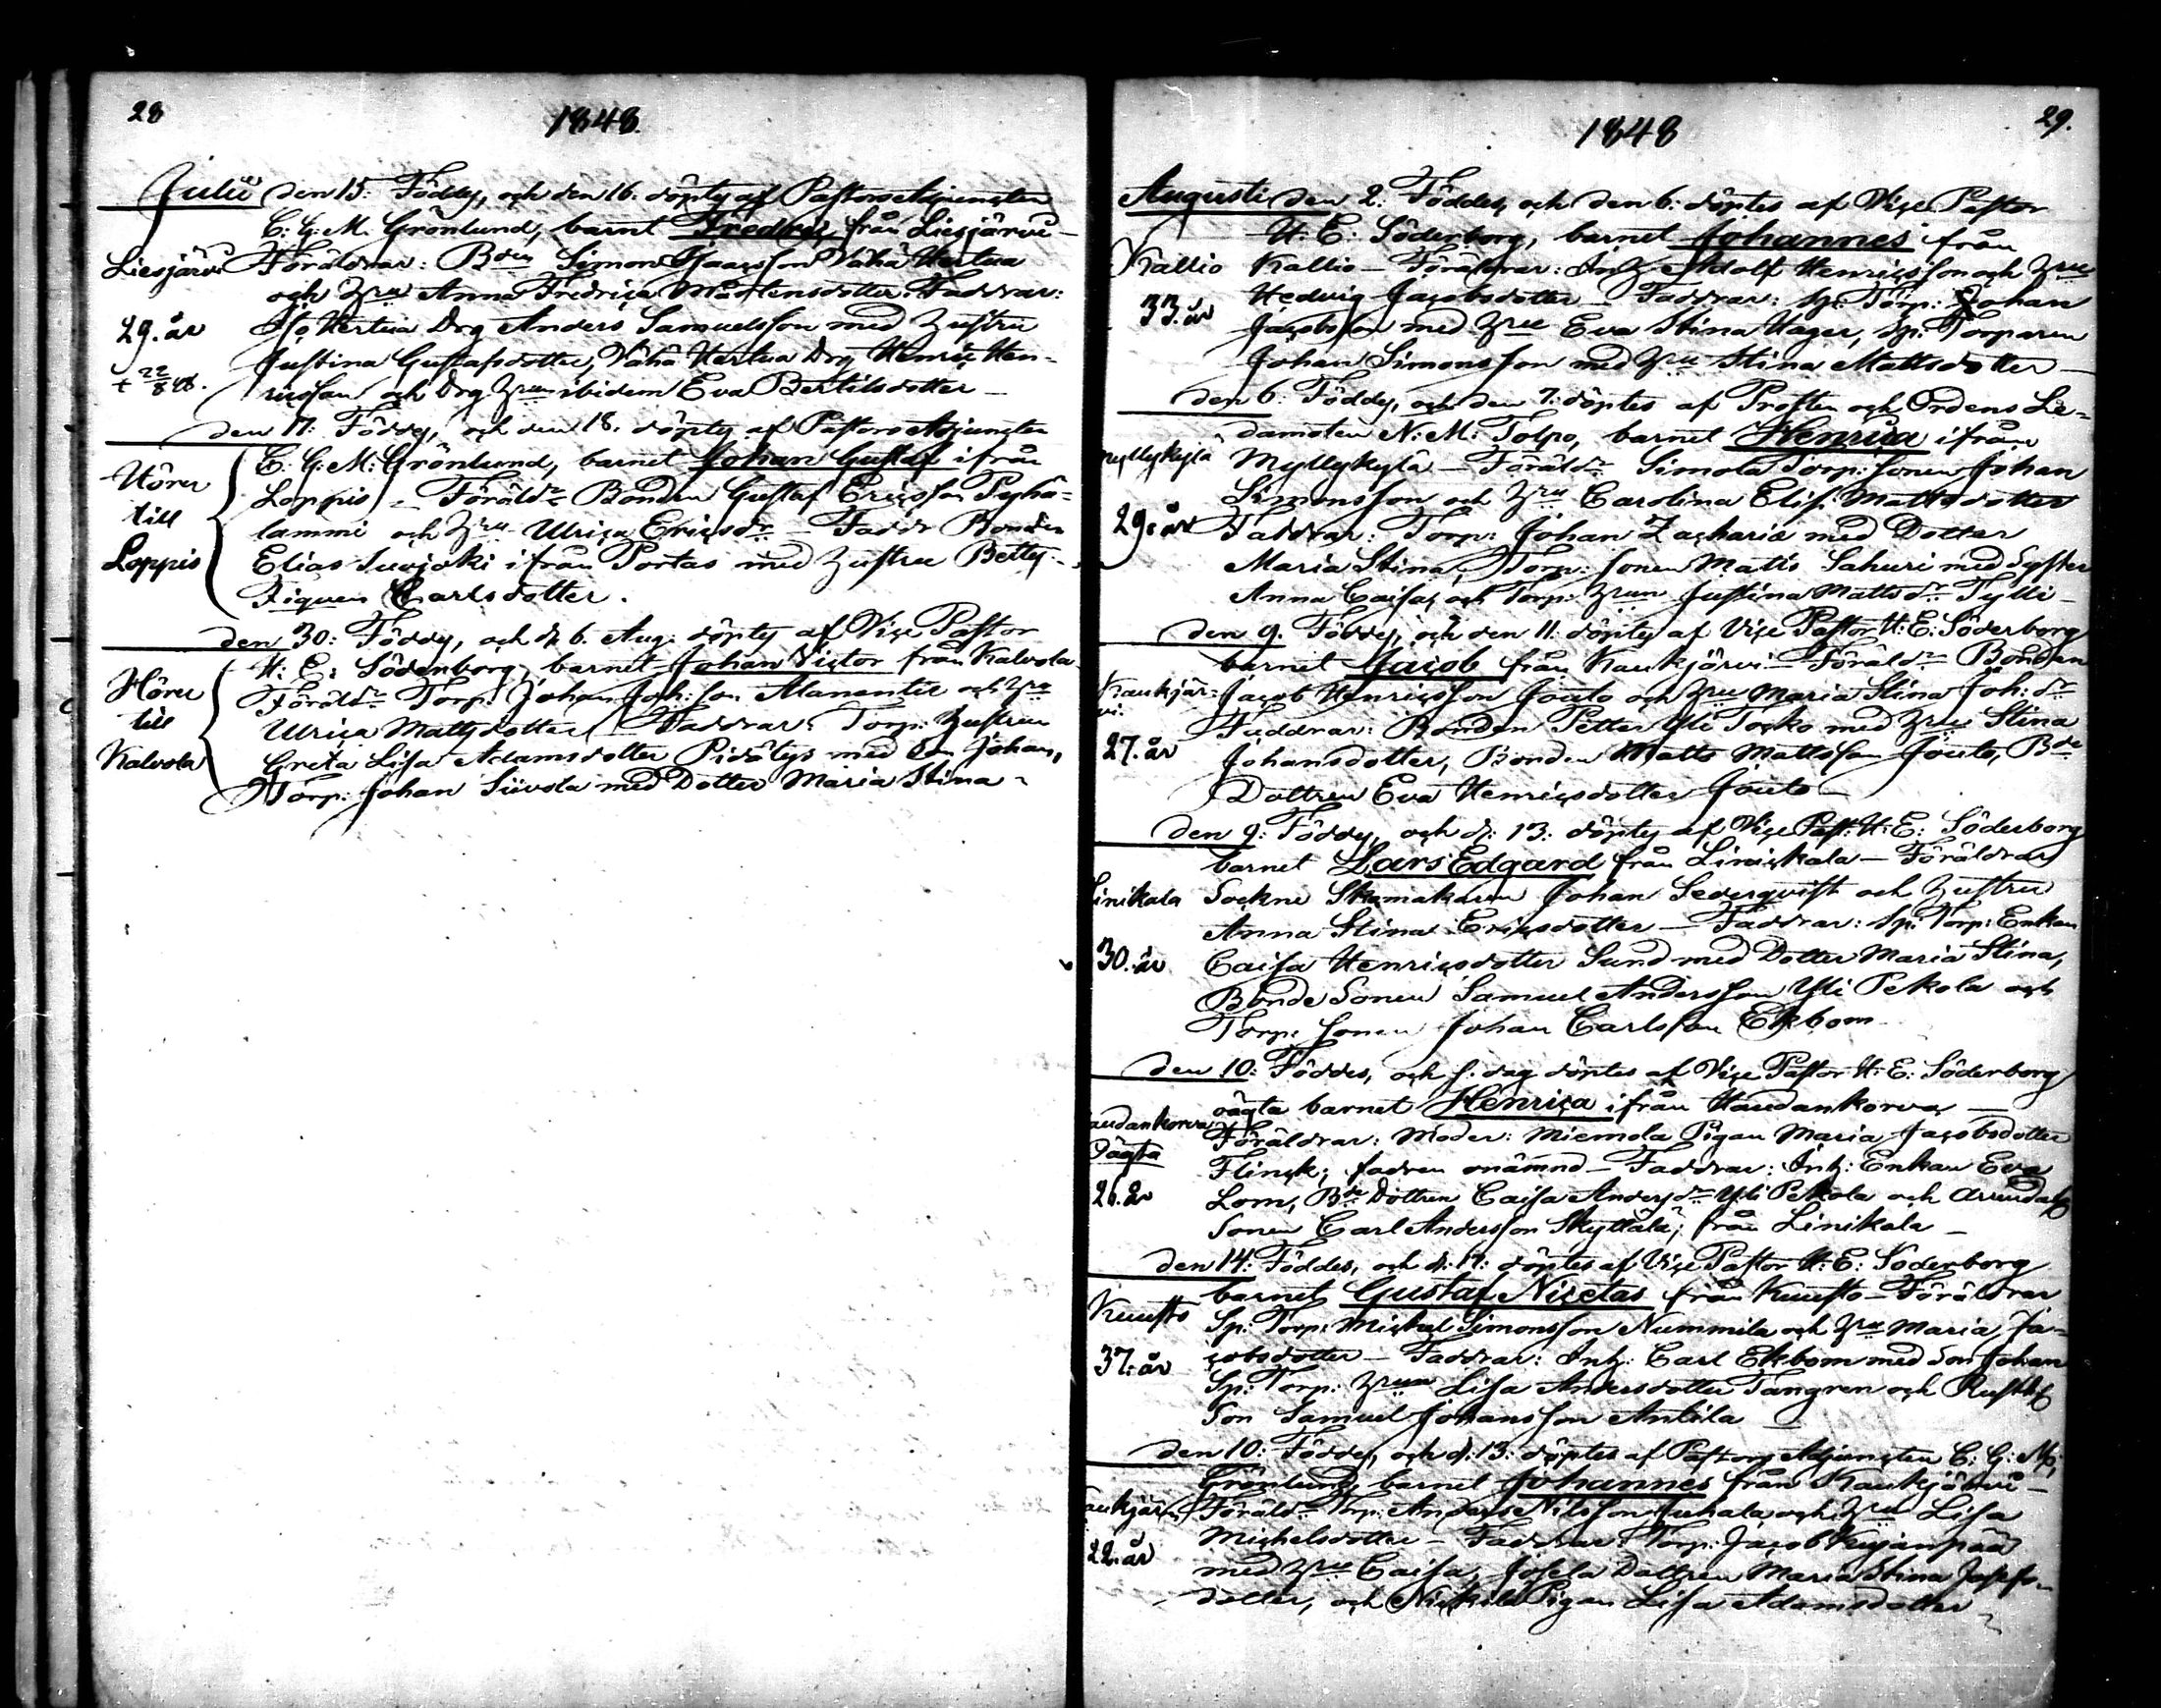 28
1848.
Julii den 15: Föddes, och den 16. döptes af Pastors Adjuncten
C: G: M. Grönlund, barnet Fredric, från Liesjärvi –
Liesjärvi Föräldrar: Bden Simon Isaacsson Vähä Hertua
och Hru Anna Fredrica Mårtensdotter. Faddrar:
29. år Iso Hertua Drg Anders Samuelsson med hustru
Justina Gustafsdotter, Vähä Hertua Drg Henric Hen-
† 22/8 48. ricsson och Drg Hrun ibidem Eva Bertilsdotter –
den 17: Föddes, och den 18. döptes af Pastors Adjuncten
C. G: M: Grönlund, barnet Johan Gustaf ifrån
Hörer till Loppis
Loppis – Föräldr Bonden Gustaf Ericsson Pyhä-
lammi och Hru Ulrica Ericsdr – Faddr Bonden
Elias Suojoki ifrån Portas med hustru Betty
Carlsdotter.
den 30: Föddes, och d. 6. Aug. döptes af Vice Pastor
H: E: Söderborg, barnet Johan Victor från Kalvola
Hörer till Kalvola
Föräldr Torp: Johan Joh:son Alanentie och Hru
Ulrica Mattsdotter – Faddrar: Torp: hustrun
Greta Lisa Adamsdotter med Son Johan,
Torp: Johan Siivola med Dotter Maria Stina –
1848
29.
Augusti den 2. Föddes, och den 6: döptes af Vice Pastor
H: E: Söderborg, barnet Johannes från
Kallio Kallio – Föräldrar: Inh: Adolf Henricsson och Hru
33. år Hedvig Jacobsdotter – Faddrar: Sp: Torp: Johan
Jacobsson med Hru Eva Stina Hager, Sp: Torparen
Johan Simonsson med Hru Stina Mattsdotter –
den 6: Föddes, och den 7: döptes af Prosten och Ordens Le-
damoten N: M: Tolpo, barnet Henrica ifrån
Myllykylä Myllykylä – Föräldr Simola Torp: sonen Johan
Simonsson och Hru Carolina Elis: Mattsdotter
29. år Faddrar: Torp: Johan Zacharie med Dotter
Maria Stina, Torp: sonen Matts Sahuri med Syster
Anna Caisa, och Torp: Hrun Justina Mattsdr Tylli –
den 9. Föddes, och den 11: döptes af Vice Pastor H: E: Söderborg
barnet Jacob från Kaukjärvi – Föräldr Bonden
Kaukjär-vi. Jacob Henricsson Jouto och Hru Maria Stina Joh: dr
Faddrar: Bonden Petter Yli Tocko med Hru Stina
27. år Johansdotter, Bonden Matts Mattsson Jouto, Bde
Dottren Eva Henricsdotter Jouto –
den 9: Föddes, och d: 13: döptes af Vice Past: H: E: Söderborg
barnet Lars Edgard från Linickala – Föräldrar
Linikala Sockne Skomakaren Johan Sederqvist och hustru
Anna Stina Ericsdotter – Faddrar: Sp: Torp: Enkan
30. år Caisa Henricsdotter Sund med Dotter Maria Stina,
Bonde Sonen Samuel Andersson Yli Pekola och
Torp: sonen Johan Carlsson Ekbom
den 10: Föddes, och s. dag döptes af Vice Pastor H: E: Söderborg
oägta barnet Henrica ifrån Haudankorva –
Haudankorva Föräldrar: Moder: Miemola Pigan Maria Jacobsdotter
Oägta Flinck; fadren onämnd – Faddrar: Inh: Enkan Eva
26. år Lom, Bde Dottren Caisa Andersdr Yli Pekola och
Sonen Carl Andersson Skyttälä; från Linikala –
den 14: Föddes, och d: 17: döptes af Vice Pastor H: E: Söderborg
barnet Gustaf Nicetas från Kuusto – Föräldrar
Kuusto Sp: Torp: Michel Simonsson Nummila och Hru Maria Ja-
37. år cobsdotter – Faddrar: Inh: Carl Ekbom med Son Johan
Sp: Torp: Hrun Lisa Andersdotter Tangren och Rusth:
Son Samuel Johansson Antila
den 10: Föddes, och d: 13: döptes af Pastors Adjuncten C: G: M:
Grönlund, barnet Johannes från Kaukjärvi –
Kaukjärvi Föräldr Torp: Anders Nilsson Juhala och Hru Lisa
22. år Michelsdotter – Faddrar: Torp: Jacob Kujanpää
med Hru Caisa, Josela Dottren Maria Stina Josefs-
dotter, och Nickilä Pigan Lisa Adamsdotter –